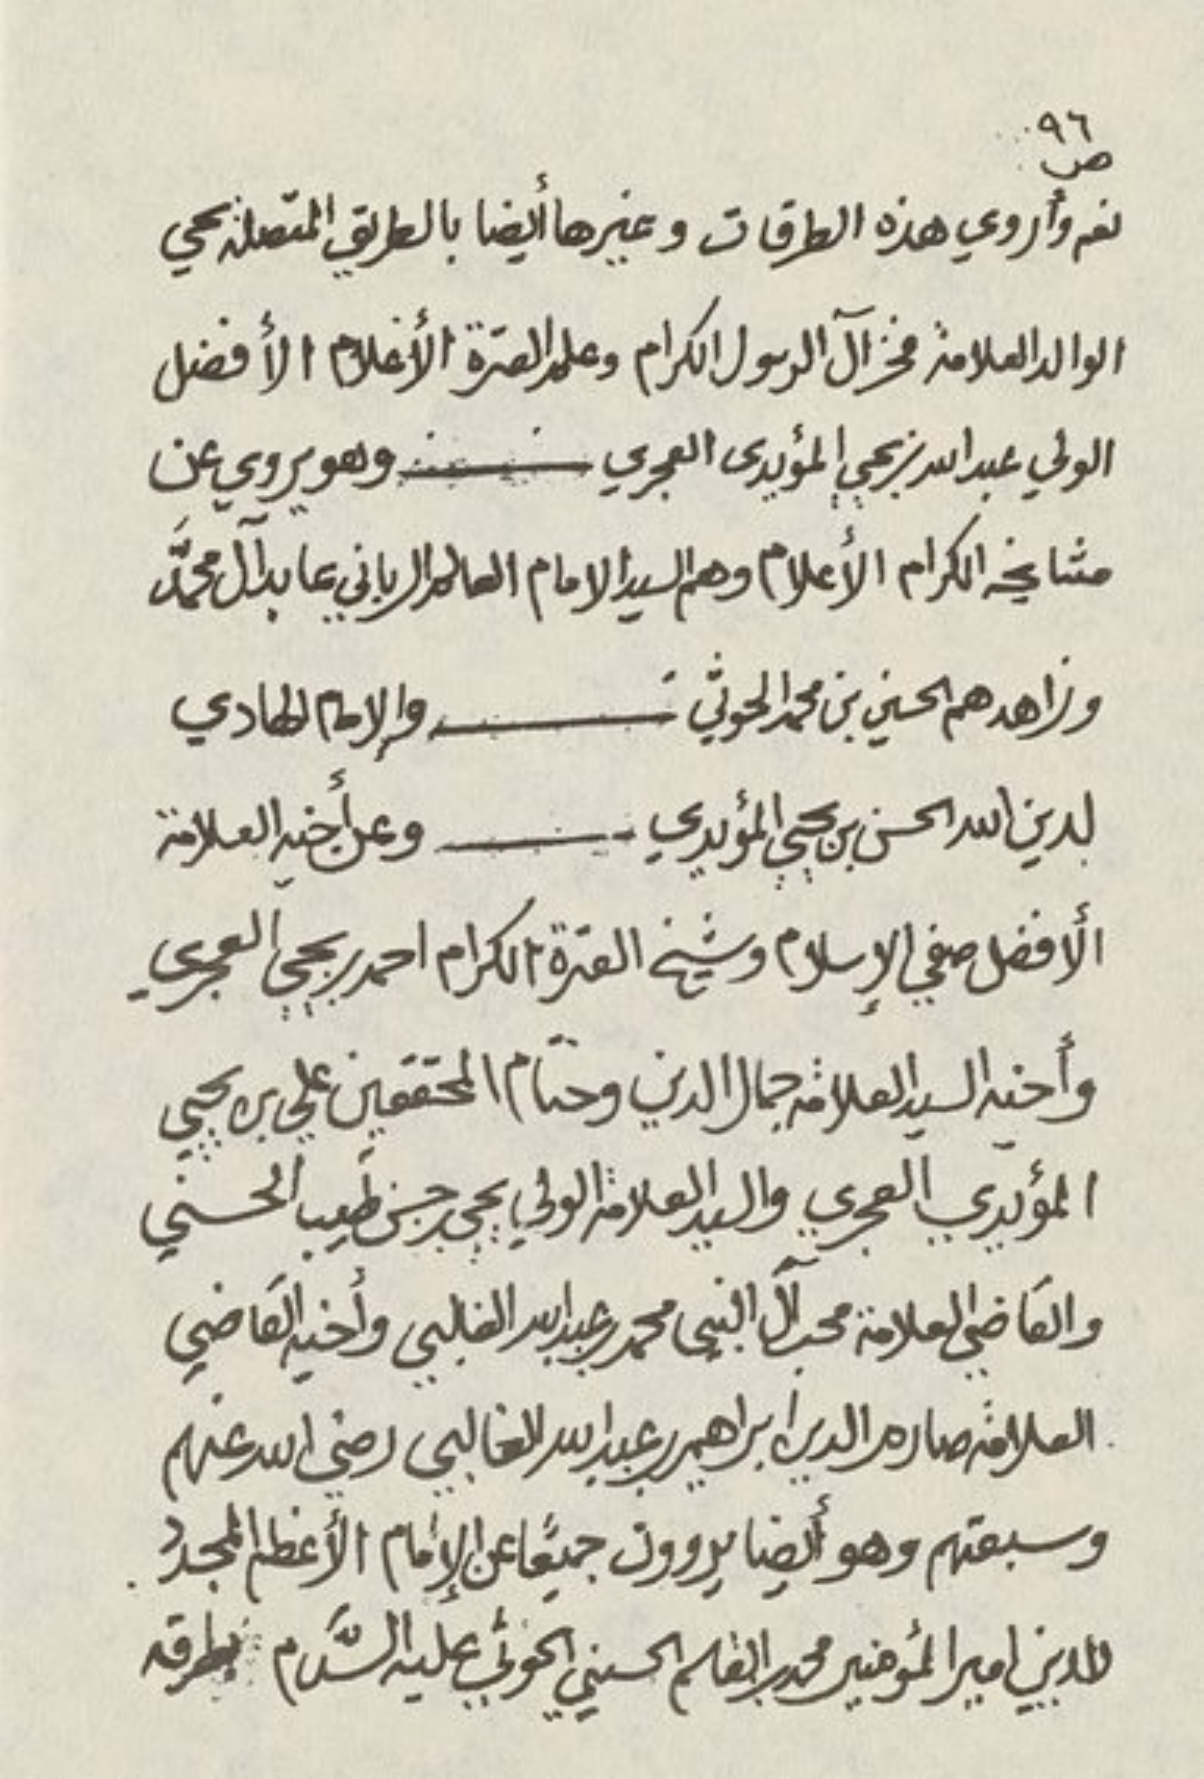 ٩٦
ص
نعم وأروي هذه الطرقات وغيرها أيضا بالطريق المتصلة بحي
الوالد العلامة فخر آل الرسول الكرام وعلم العترة الأعلام الأفضل
الولي عبدالله بن يحيى المؤيدى العجري وهو يروي عن
مشايخه الكرام الأعلام وهم السيد الامام العالم الرباني عابد آل محمَّد
وزاهدهم الحسين بن محمد الحوثي والإمام الهادي
لدين الله الحسن بن يحيى المؤيدي وعن أخيه العلامة
الأفضل صفي الإسلام وشيخ العترة الكرام احمد بن يحيى العجري
وأخيه السيد العلامة جمال الدين وختام المحققين علي بن يحيى
المؤيدي العجري والسيد العلامة الولي يحيى بن حسن طيب الحسني
والقاضي العلامة محب آل النبي محمد بن عبدالله الغالبي وأخيه القاضي
العلامة صارم الدين ابراهيم بن عبدالله الغالبي رضي الله عنهم
وسبعتهم وهو أيضا يروون جميعًا عن الإمام الأعظم المجدد
للدين امير المؤمنين محمد بن القاسم الحسيني الحوثي عليه السَّلام بطرقه